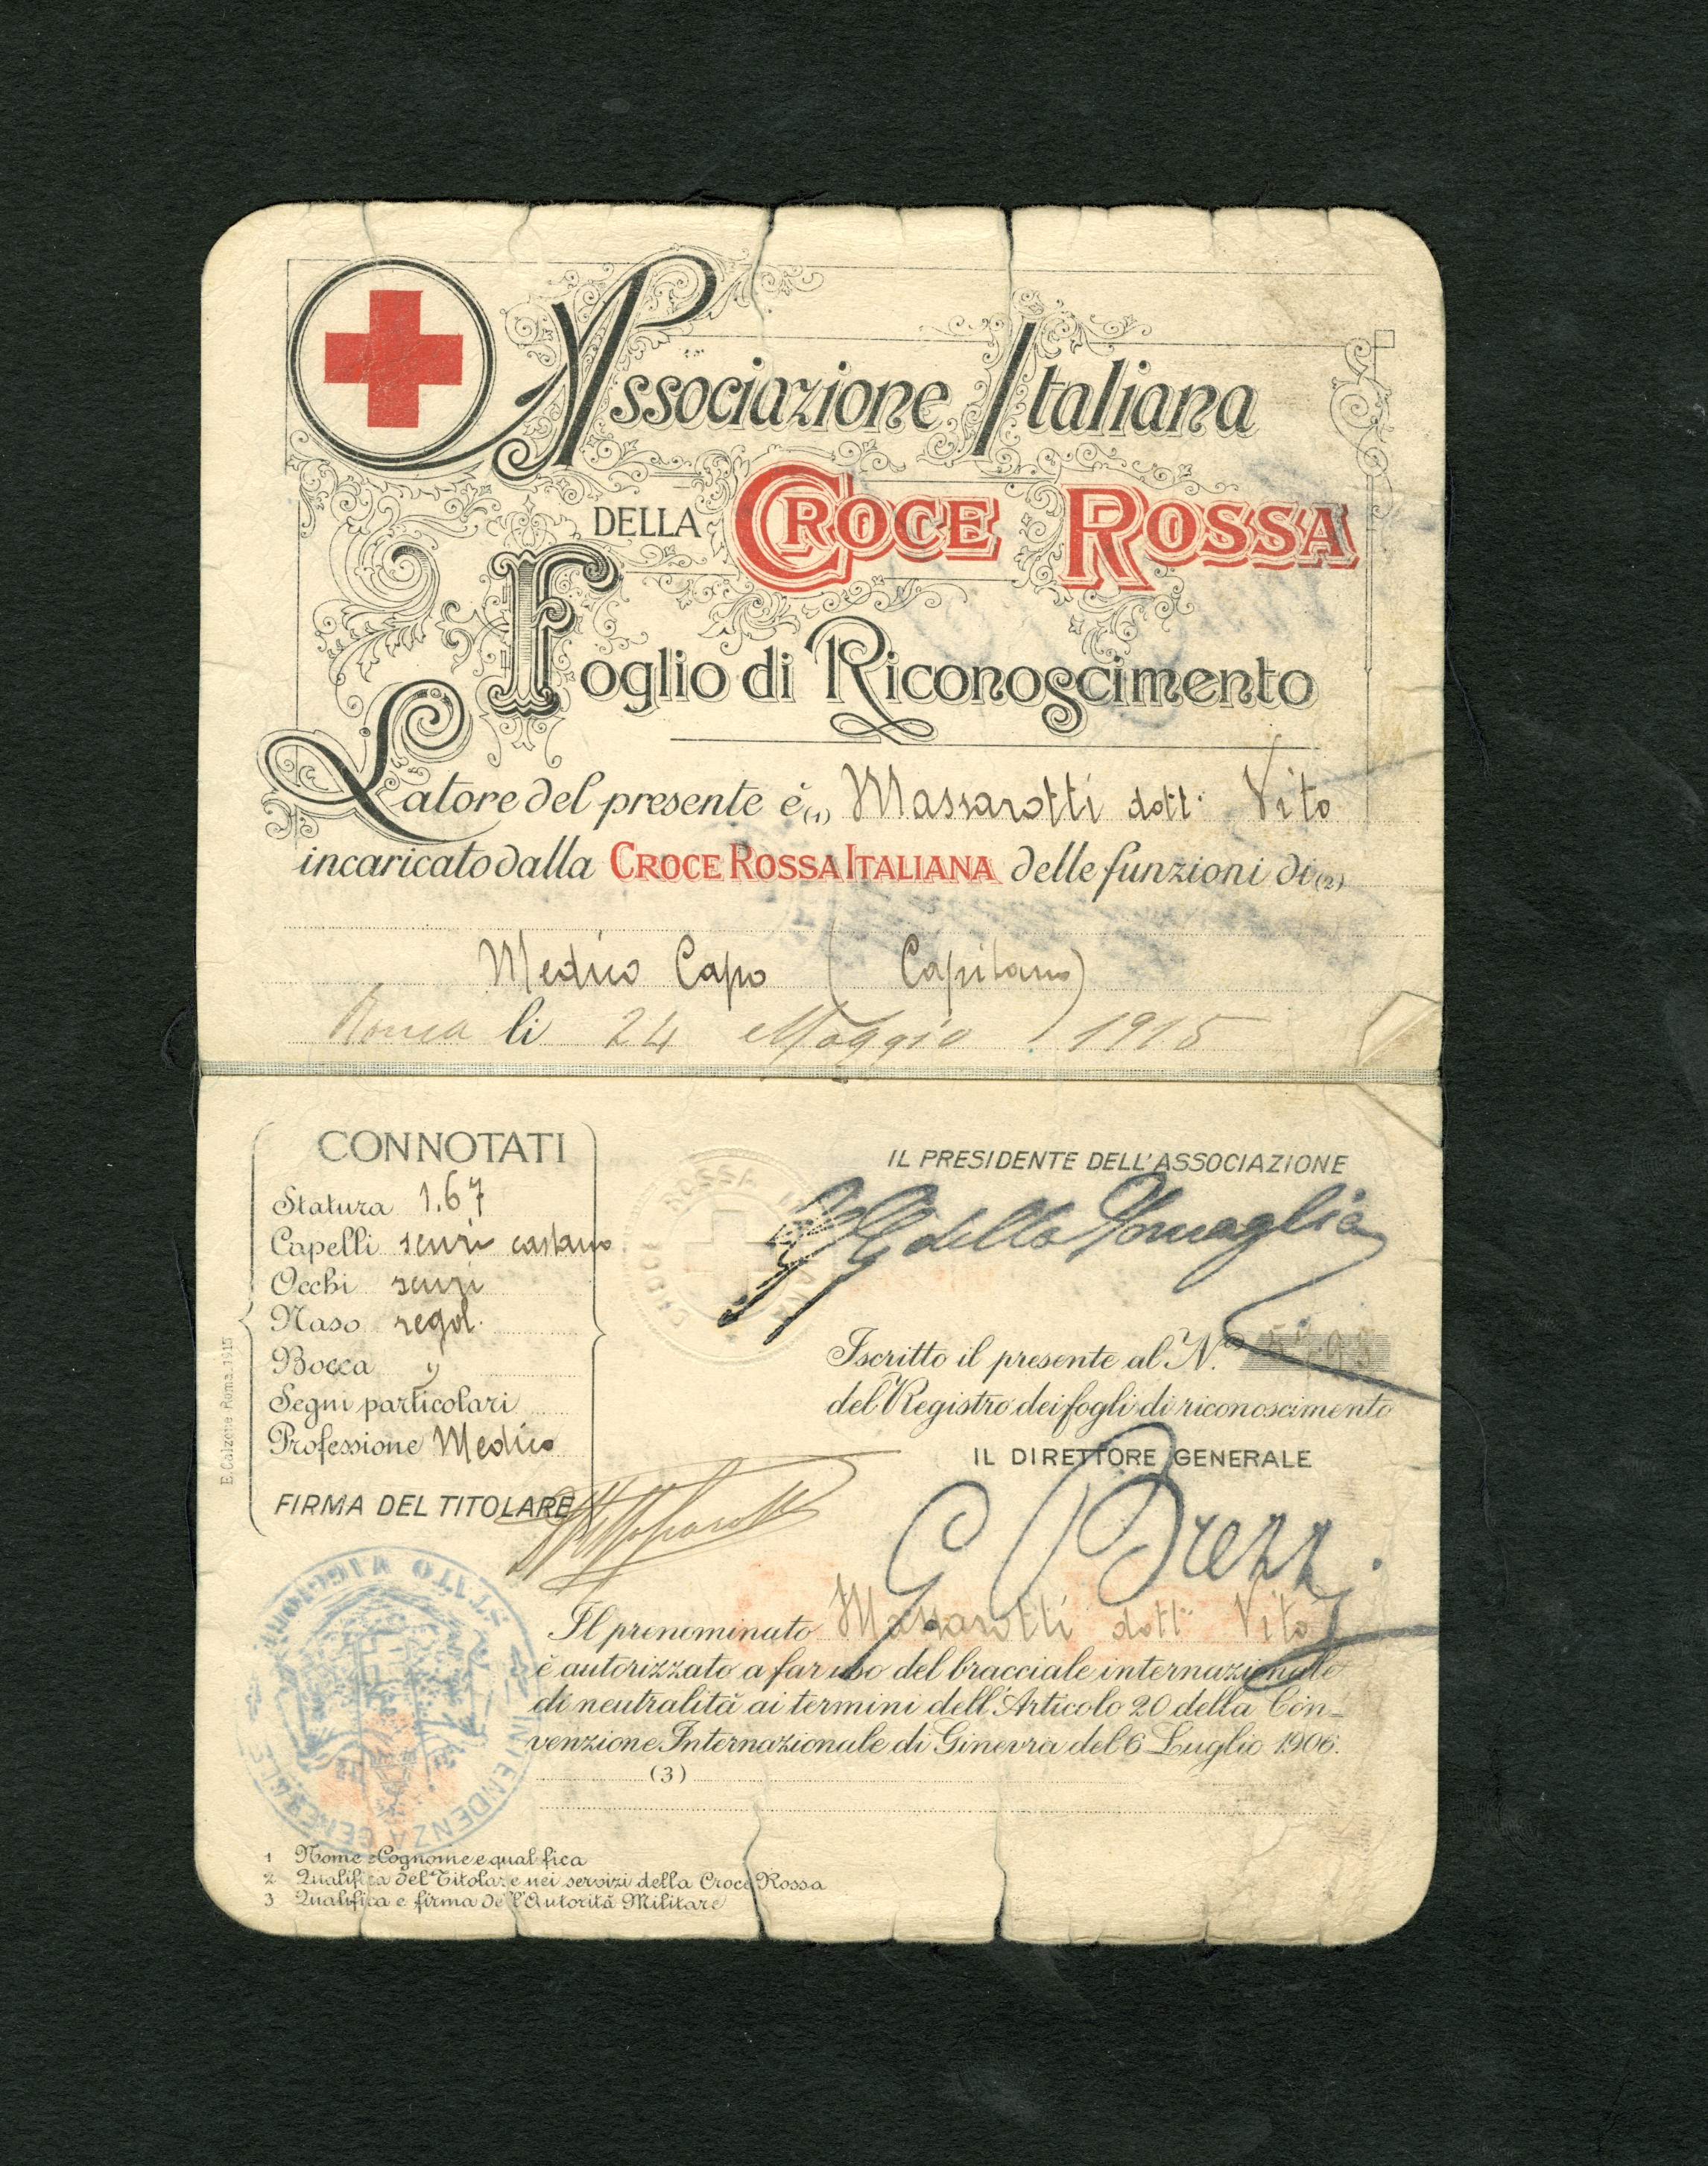 Associazione Italiana
DELLA CROCE ROSSA
Foglio di Riconoscimento
Latore del presente è (1) Massarotti dott. Vito
incaricato dalla CROCE ROSSA ITALIANA delle funzioni di (2)
Medico Capo (Capitano)
Roma li 24 Maggio 1915
CONNOTATI
Statura 1.67
Capelli scuri castano
Occhi scuri
Naso regol.
Bocca "
Segni particolari
Professione Medico
FIRMA DEL TITOLARE
E. Calzone Roma. 1915
CROCE ROSSA ITALIANA
IL PRESIDENTE DELL'ASSOCIAZIONE
GG della Somaglia
Iscritto il presente al N.o
del Registro dei fogli di riconoscimento
IL DIRETTORE GENERALE
Il prenominato Massarotti dott. Vito
è autorizzato a far uso del bracciale internazionale
di neutralità ai termini dell'Articolo 20 della Con-
venzione Internazionale di Ginevra del 6 Luglio 1906.
(3)
STATO MAGGIORE
INTENDENZA GENERALE
1 Nome Cognome e qualifica
2 Qualifica del Titolare nei servizi della Croce Rossa
3 Qualifica e firma dell'Autorità Militare